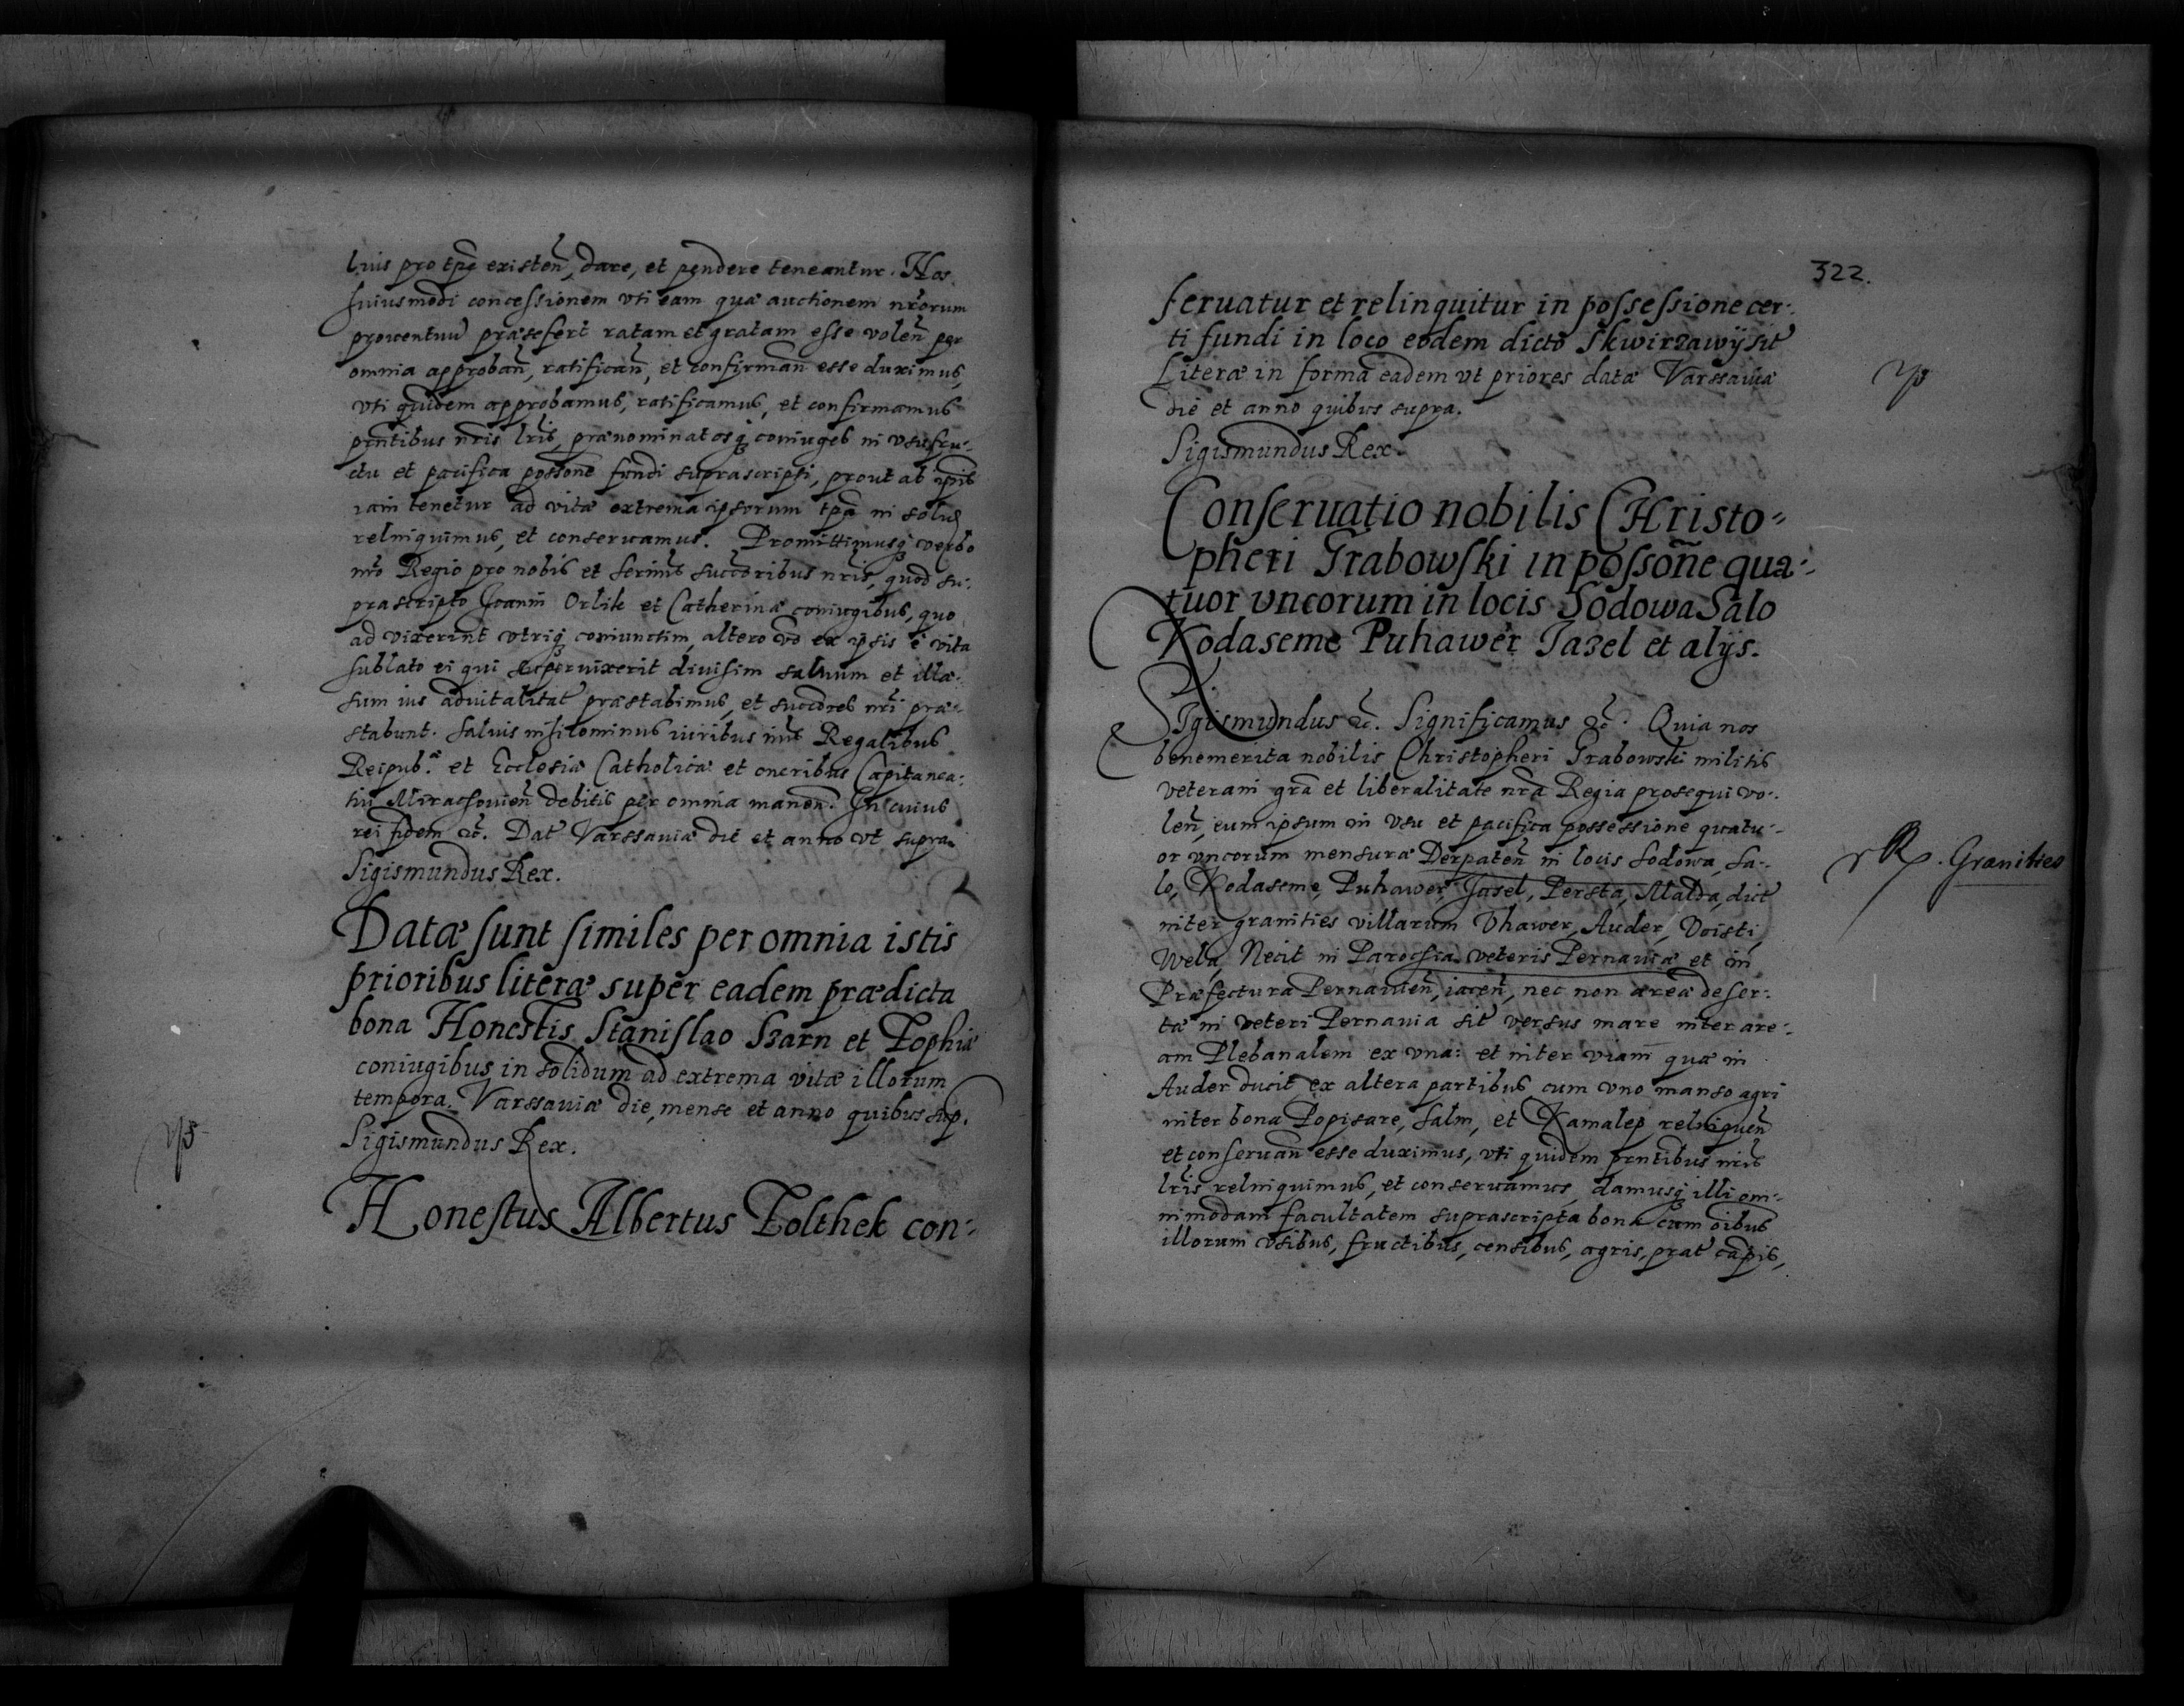 huius pro tp̄e existeñ, dare, et pendere teneantur. Nos
huiusmodi concessionem vti eam quæ auctionem nr̃orum
prouentuũ præsefert ratam et gratam esse voleñ per
omnia approbañ, ratificañ, et confirmañ esse duximus,
vti quidem approbamus, ratificamus, et confirmamus
pn̄tibus nr̃is lr̃is, prænominatosq; coniuges in vsufru-
ctu et pacifica possone fundi suprascripti, prout ab ip̄is
iam tenetur ad vitæ extrema ipsorum tp̄a in solid
relinquimus, et conseruamus. Promittimusq; verbo
nr̃o Regio pro nobis et Serims succoribus nr̃is, quod su-
prascripto Joanni Orlik et Catherinæ coniugibus, quo
ad vixerint vtriq; coniunctim, altero vo ex ipsis è vita
sublato ei qui superuixerit diuisim saluum et illæ-
sum ius aduitalitat præstabimus, et succores nr̃i præ-
stabunt. Saluis nihilominus iuribus nr̃is Regalibus
Reipub.æ et Ecclesiæ Catholicæ et oneribus Capitanea-
tui Miracsouieñ debitis per omnia maneñ. In cuius
rei fidem &c. Dat Varssauiæ die et anno vt supra.
Sigismundus Rex.
Datæ sunt similes per omnia istis
prioribus literæ super eadem prædicta
bona Honestis Stanislao Szarn et Zophiæ
coniugibus in solidum ad extrema vitæ illorum
tempora. Varssauiæ die, mense et anno quibus sup.
Sigismundus Rex.
Honestus Albertus Zolthek con-
322.
seruatur et relinquitur in possessione cer-
ti fundi in loco eodem dicto Skwirzawÿ sit
Literæ in forma eadem vt priores datæ Varssauiæ
die et anno quibus supra.
Sigismundus Rex.
Conseruatio nobilis Christo-
pheri Grabowski in possoñe qua-
tuor vncorum in locis Sodowa Salo
Kodaseme Puhawer Jazel et alijs.
Sigismundus &c. Significamus &c. Quia nos
benemerita nobilis Christopheri Grabowski militis
veterani gr̃a et liberalitate nr̃a Regia prosequi vo-
leñ, eum ipsum in vsu et pacifica possessione quatu-
or vncorum mensuræ Derpateñ in locis Sodowa, Sa-
lo, Kodaseme, Puhawer, Jasel, Persta, Malda, dict
inter granities villarum Vhawer, Auder, Voisti,
Wela, Necit in Parochia veteris Pernauiæ et in
Præfectura Pernauieñ, iaceñ, nec non areæ deser-
tæ in veteri Pernauia sit versus mare inter are-
am Plebanalem ex vna: et inter viam quæ in
Auder ducit ex altera partibus cum vno manso agri
inter bona Popisare, Salm, et Kamalep relinqueñ
et conseruañ esse duximus, vti quidem prntibus nr̃is
lr̃is relinquimus, et conseruamus, damusq; illi om-
nimodam facultatem suprascripta bona cum oibus
illorum vsibus, fructibus, censibus, agris, prat campis,
Granities